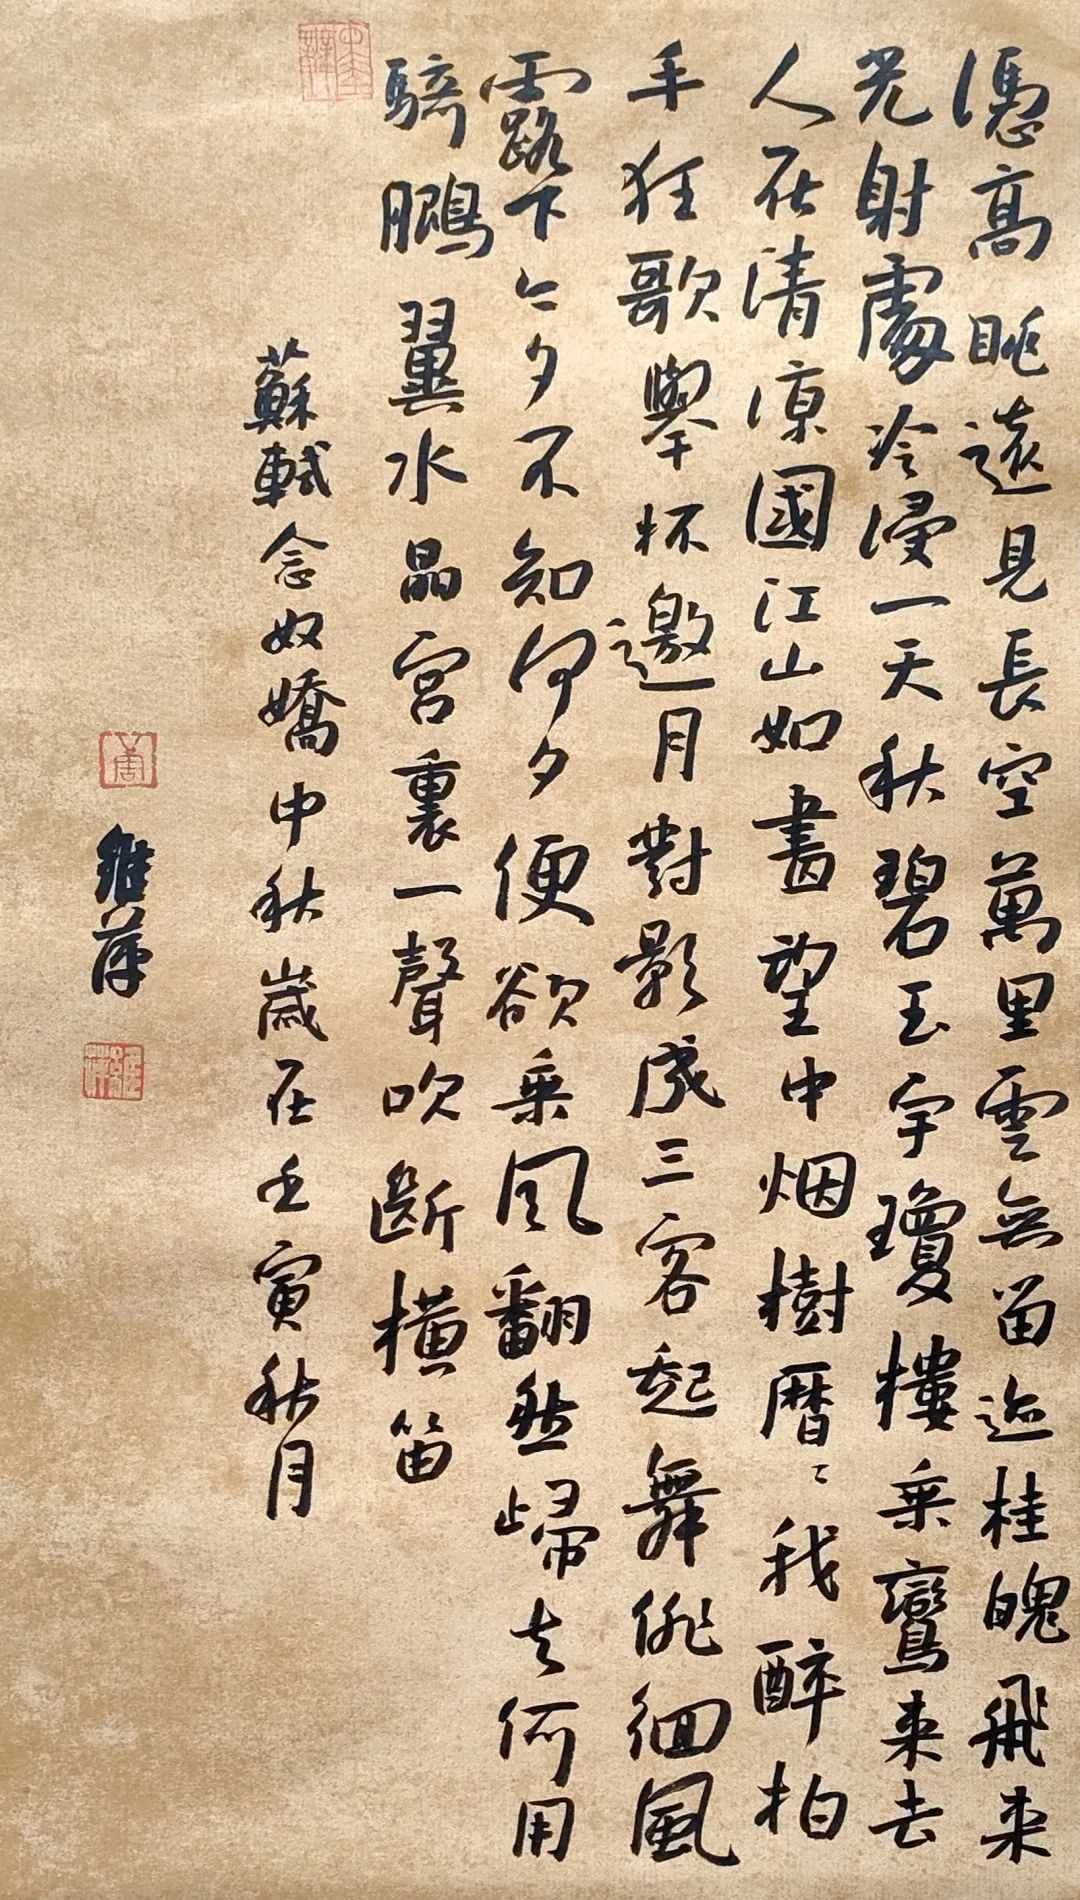 憑高眺遠見長空萬里雲無留迹桂魄飛来
光射處冷浸一天秋碧玉宇瓊樓乗鸞来去
人在清涼國江山如畫望中烟樹曆〻我醉拍
手狂歌舉杯邀月對影成三客起舞俳徊風
露下今夕不知何夕便欲乗風翻然歸去何用
騎鵬翼水晶宮裏一聲吹斷横笛
蘇軾念奴嬌中秋歲在壬寅秋月
維萍